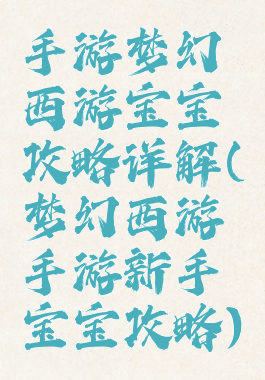 手游梦幻
西游宝宝
攻略详解(
梦幻西游
手游新手
宝宝攻略)